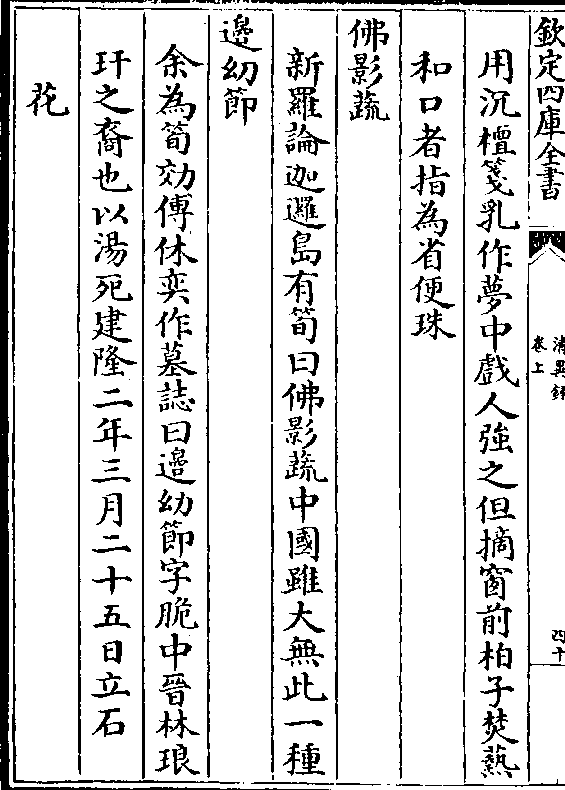 欽定四庫全書
清異錄
卷上
四十
用沉檀箋乳作夢中戲人強之但摘窗前柏子焚爇
和口者指為省便珠
佛影蔬
新羅論迦邏島有筍曰佛影蔬中國雖大無此一種
邊幼節
余為筍効傅休奕作墓誌曰邊幼節字脆中晉林琅
玕之裔也以湯死建隆二年三月二十五日立石
花